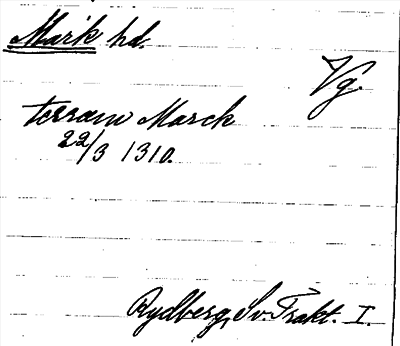 Mark hd.
Vg.
terram Marck
22/3 1310.
Rydberg, Sv. Trakt. I.